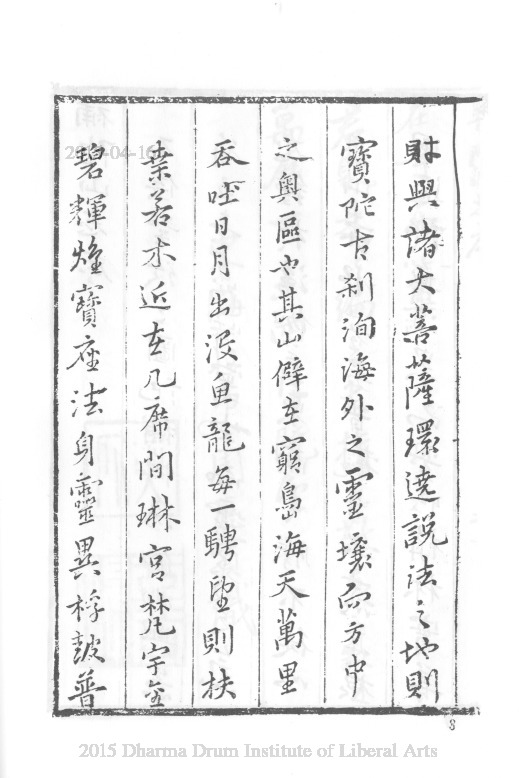 財與諸大菩薩環遶說法之地則
寶陀古刹洵海外之靈壤而方中
之奧區也其山僻在窮島海天萬里
吞吐日月出沒魚龍每一騁望則扶
桑若木近在几席間琳宮梵宇金
碧輝煌寶座法身靈異桴鼓普
8
2015 Dharma Drum Institute of Liberal Arts